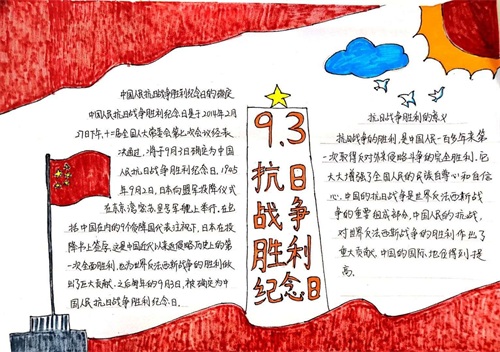 中国人民抗日战争胜利纪念日的确定
中国人民抗日战争胜利纪念日是于2014年2月
27日下午,十二届全国人大常委会第七次会议经表
决通过,将于9月3日确定为中国
人民抗日战争胜利纪念日,1945
年9月2日,日本向盟军投降仪式
在东京湾密苏里号军舰上举行。在包
括中国在内的9个受降国代表注视下,日本在投
降书上签字,这是中国近代以来反侵略历史上的第
一次全面胜利,也为世界反法西斯战争的胜利做
出了巨大贡献,之后每年的9月3日,被确定为中
国人民抗日战争胜利纪念日.
9.3
抗日
战争
胜利
纪念日
抗日战争胜利的意义
抗日战争的胜利,是中国人民一百多年来第
一次取得反对外来侵略斗争的完全胜利。它
大大增强了全国人民的民族自尊心和自信
心,中国的抗日战争是世界反法西斯战
争的重要组成部分,中国人民的抗战,
对世界反法西斯战争的胜利作出了
重大贡献,中国的国际地位得到提
高。